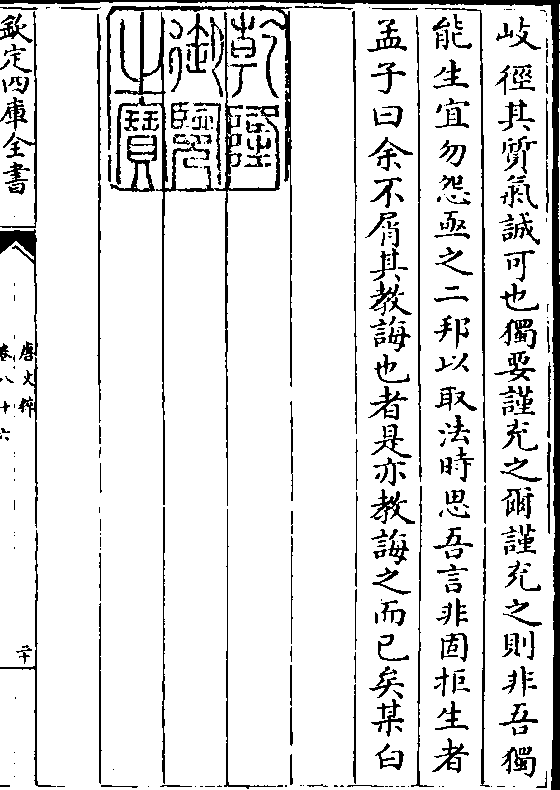 岐徑其質氣誠可也獨要謹充之爾謹充之則非吾獨
能生宜勿怨亟之二邦以取法時思吾言非固拒生者
孟子曰余不屑其教誨也者是亦教誨之而已矣某白
乾隆
御覽
之寶
欽定四庫全書
唐文粹
卷八十六
二十